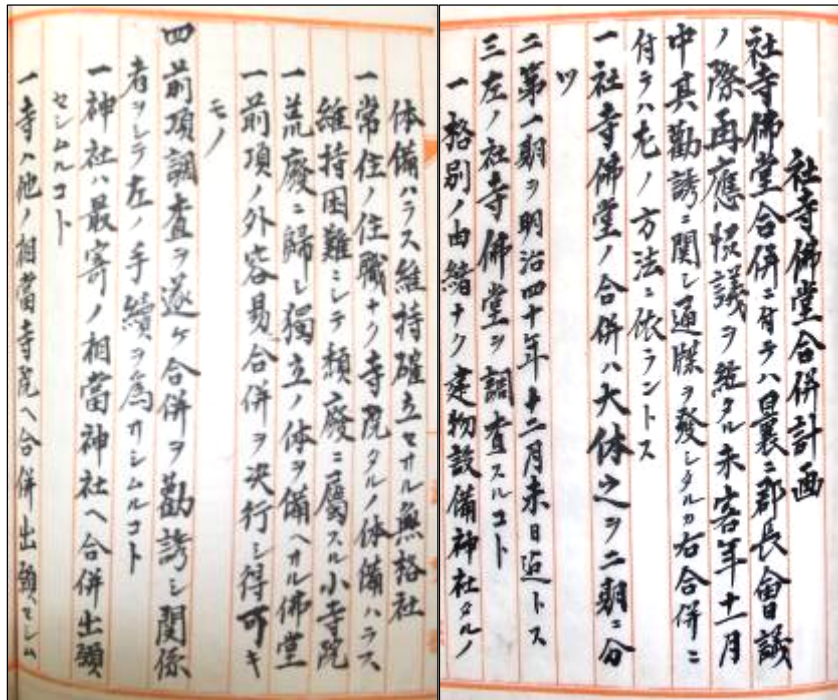 社寺佛堂合併計画
社寺佛堂合併ニ付テハ曩ニ郡長會議
ノ際再應恊議ヲ經タル末客年十一月
中其勸誘ニ関シ通牒ヲ發シタルカ右合併ニ
付テハ左ノ方法ニ依ラントス
一社寺佛堂ノ合併ハ大体之ヲ二期ニ分
ツ
二第一期ヲ明治四十年十二月末日迄トス
三左ノ社寺佛堂ヲ調査スルコト
一格別ノ由緒ナク建物設備神社タルノ
体備ハラス維持確立セサル無格社
一常住ノ住職ナク寺院タルノ体備ハラス
維持困難ニシテ頽廢ニ屬スル小寺院
一荒廢ニ歸シ獨立ノ体ヲ備ヘサル佛堂
一前項ノ外容易ニ合併ヲ决行シ得可キ
モノ
四前項調査ヲ遂ケ合併ヲ勸誘シ関係
者ヲシテ左ノ手續ヲ爲サシムルコト
一神社ハ最寄ノ相當神社ヘ合併出願
セシムルコト
一寺ハ他ノ相當寺院ヘ合併出願セシム